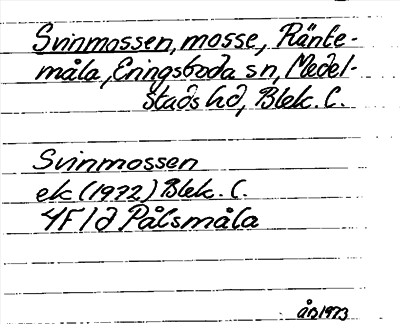 Svinmossen, mosse, Ränte-
måla, Eringsboda sn, Medel-
stads hd, Blek. l.
Svinmossen
ek (1972) Blek. l.
4F1d Pålsmåla
1973